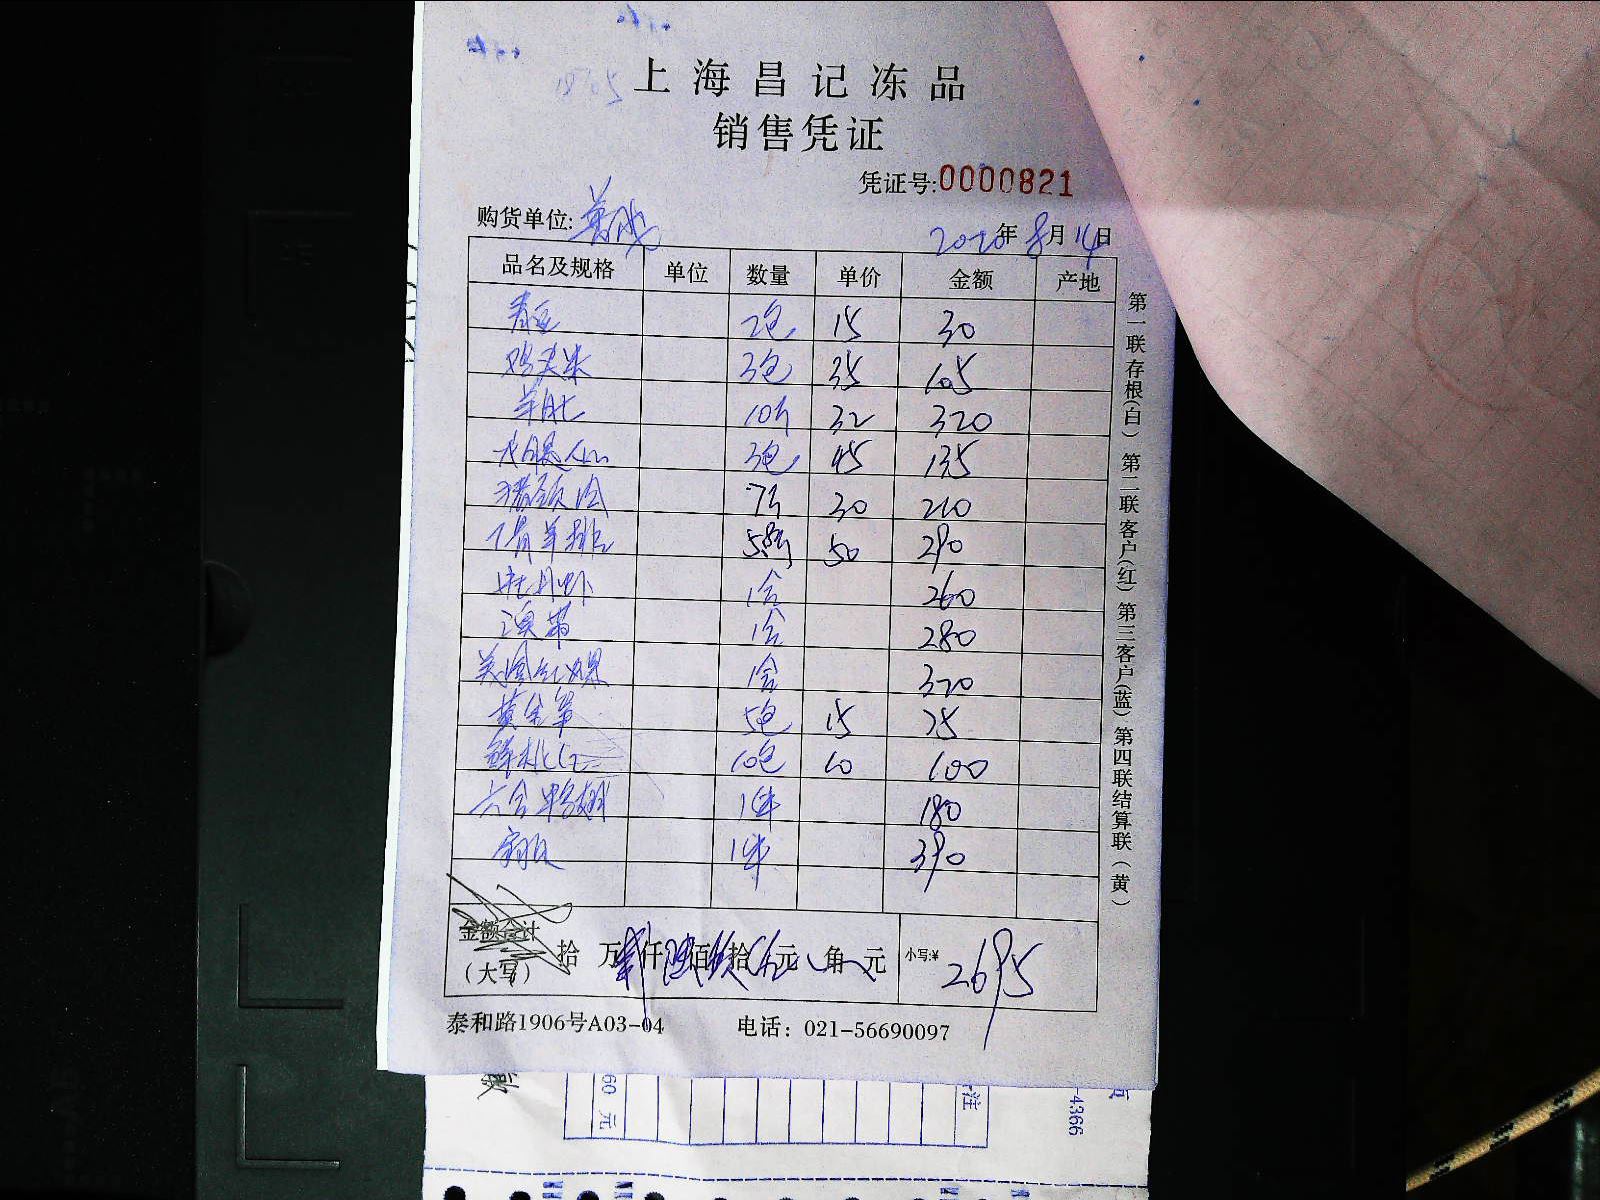 上海昌记冻品
销售凭证
凭证号:0000821
购货单位:
2020年8月14日
品名及规格 单位 数量 单价 金额 产地
2包 15 30
鸡头米 3包 35 105
羊肚 10斤 32 320
3包 45 135
猪颈肉 7斤 30 210
羊排 5.8斤 50 290
牡丹虾 1盒 260
澳带 1盒 280
1盒 320
黄金笋 5包 15 75
鲜桃仁 10包 10 100
六合鸭翅 1件 180
1件 390
金额合计
(大写) 拾 万贰仟陆佰玖拾伍元 角 元 小写:¥ 2695
泰和路1906号A03-04 电话: 021-56690097
第一联存根(白) 第二联客户(红) 第三客户(蓝) 第四联结算联(黄)
60 元
注
-4366
页